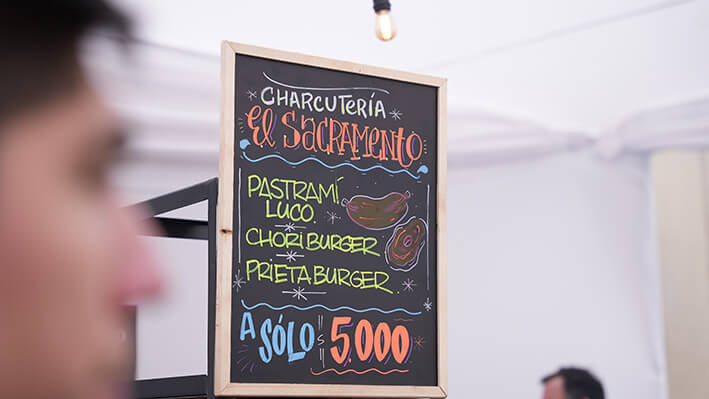 CHARCUTERÍA
El SACRAMENTO
PASTRAMÍ
LUCO.
CHORIBURGER
PRIETABURGER
A SÓLO $ 5.000